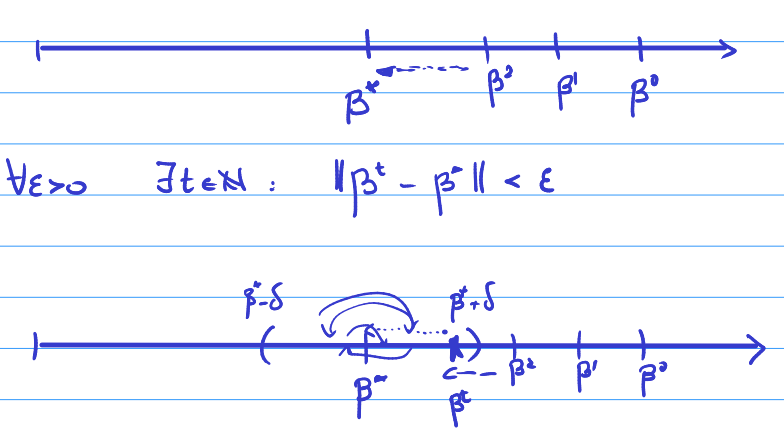 β* β² β¹ β⁰
∀ε>0 ∃t∈ℕ : ‖βᵗ - β*‖ < ε
β*-δ β*+δ
( )
β* βᵗ β² β¹ β⁰